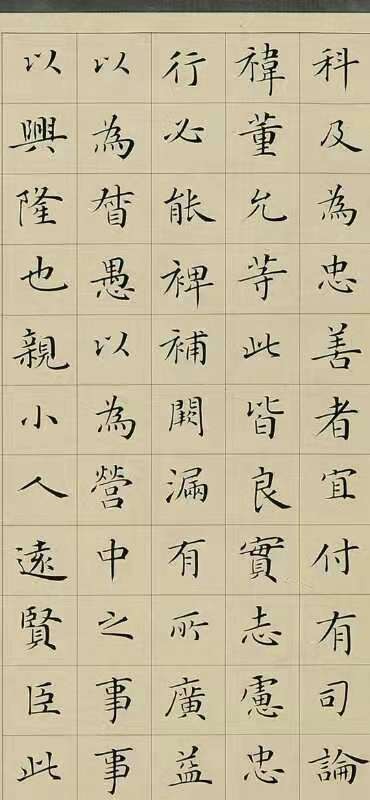 科及為忠善者宜付有司論
禕董允等此皆良實志慮忠
行必能裨補闕漏有所廣益
以為督愚以為營中之事事
以興隆也親小人遠賢臣此